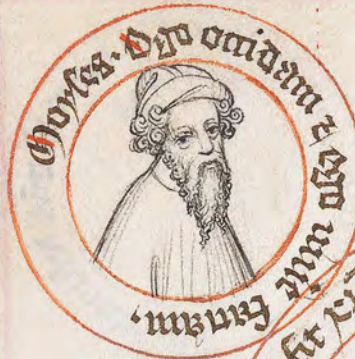 Moyses. Ego occidam ⁊ ego uiue faciam.